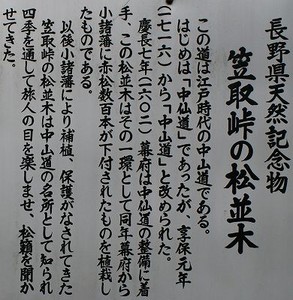 長野県天然記念物
笠取峠の松並木
この道は江戸時代の中山道である。
はじめは「中仙道」であったが、享保元年
(一七一六)から「中山道」と改められた。
慶長七年(一六〇二)幕府は中仙道の整備に着
手、この松並木はその一環として同年幕府から
小諸藩に赤松数百本が下付されたものを植栽し
たものである。
以後小諸藩により補植、保護がなされてきた
笠取峠の松並木は中山道の名所として知られ
四季を通して旅人の目を楽しませ、松籟を聞か
せてきた。